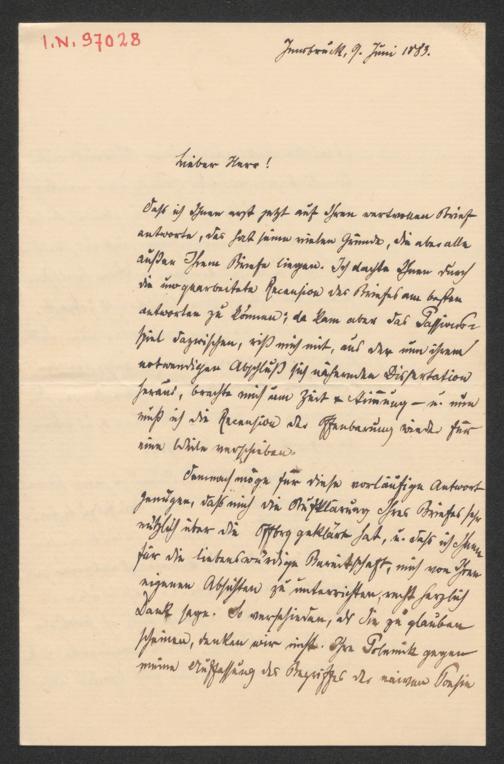 I.N. 97028
Innsbruck, 9. Juni 1883.
Lieber Herr!
Daß ich Ihnen erst jetzt auf Ihren wertvollen Brief
antworte, das hat seine vielen Gründe, die aber alle
außer Ihrem Briefe liegen. Ich dachte Ihnen durch
die umgearbeitete Recension des Briefes am besten
antworten zu können; da kam aber das Passions-
spiel dazwischen, riß mich mit, aus der nun ihrem
notwendigen Abschluß sich nähernden Dissertation
heraus, brachte mich um Zeit & Stimmung – u. nun
muß ich die Recension der Offenbarung wieder für
eine Weile verschieben.
Demnach möge für diese vorläufige Antwort
genügen, daß mich die Aufklärung Ihres Briefes sehr
nützlich über die Offbrg geklärt hat, u. daß ich Ihnen
für die liebenswürdige Bereitschaft, mich von Ihren
eigenen Absichten zu unterrichten, recht herzlich
Dank sage. So verschieden, als Sie zu glauben
scheinen, denken wir nicht. Ihre Polemik gegen
meine Auffassung des Begriffes der naiven Poesie